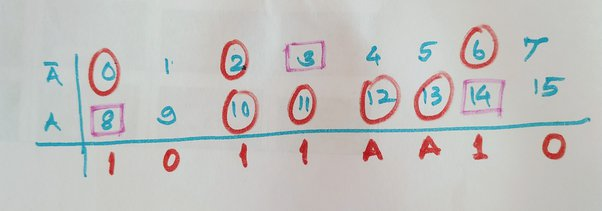 Ā 0 1 2 3 4 5 6 7
A 8 9 10 11 12 13 14 15
1 0 1 1 A A 1 0